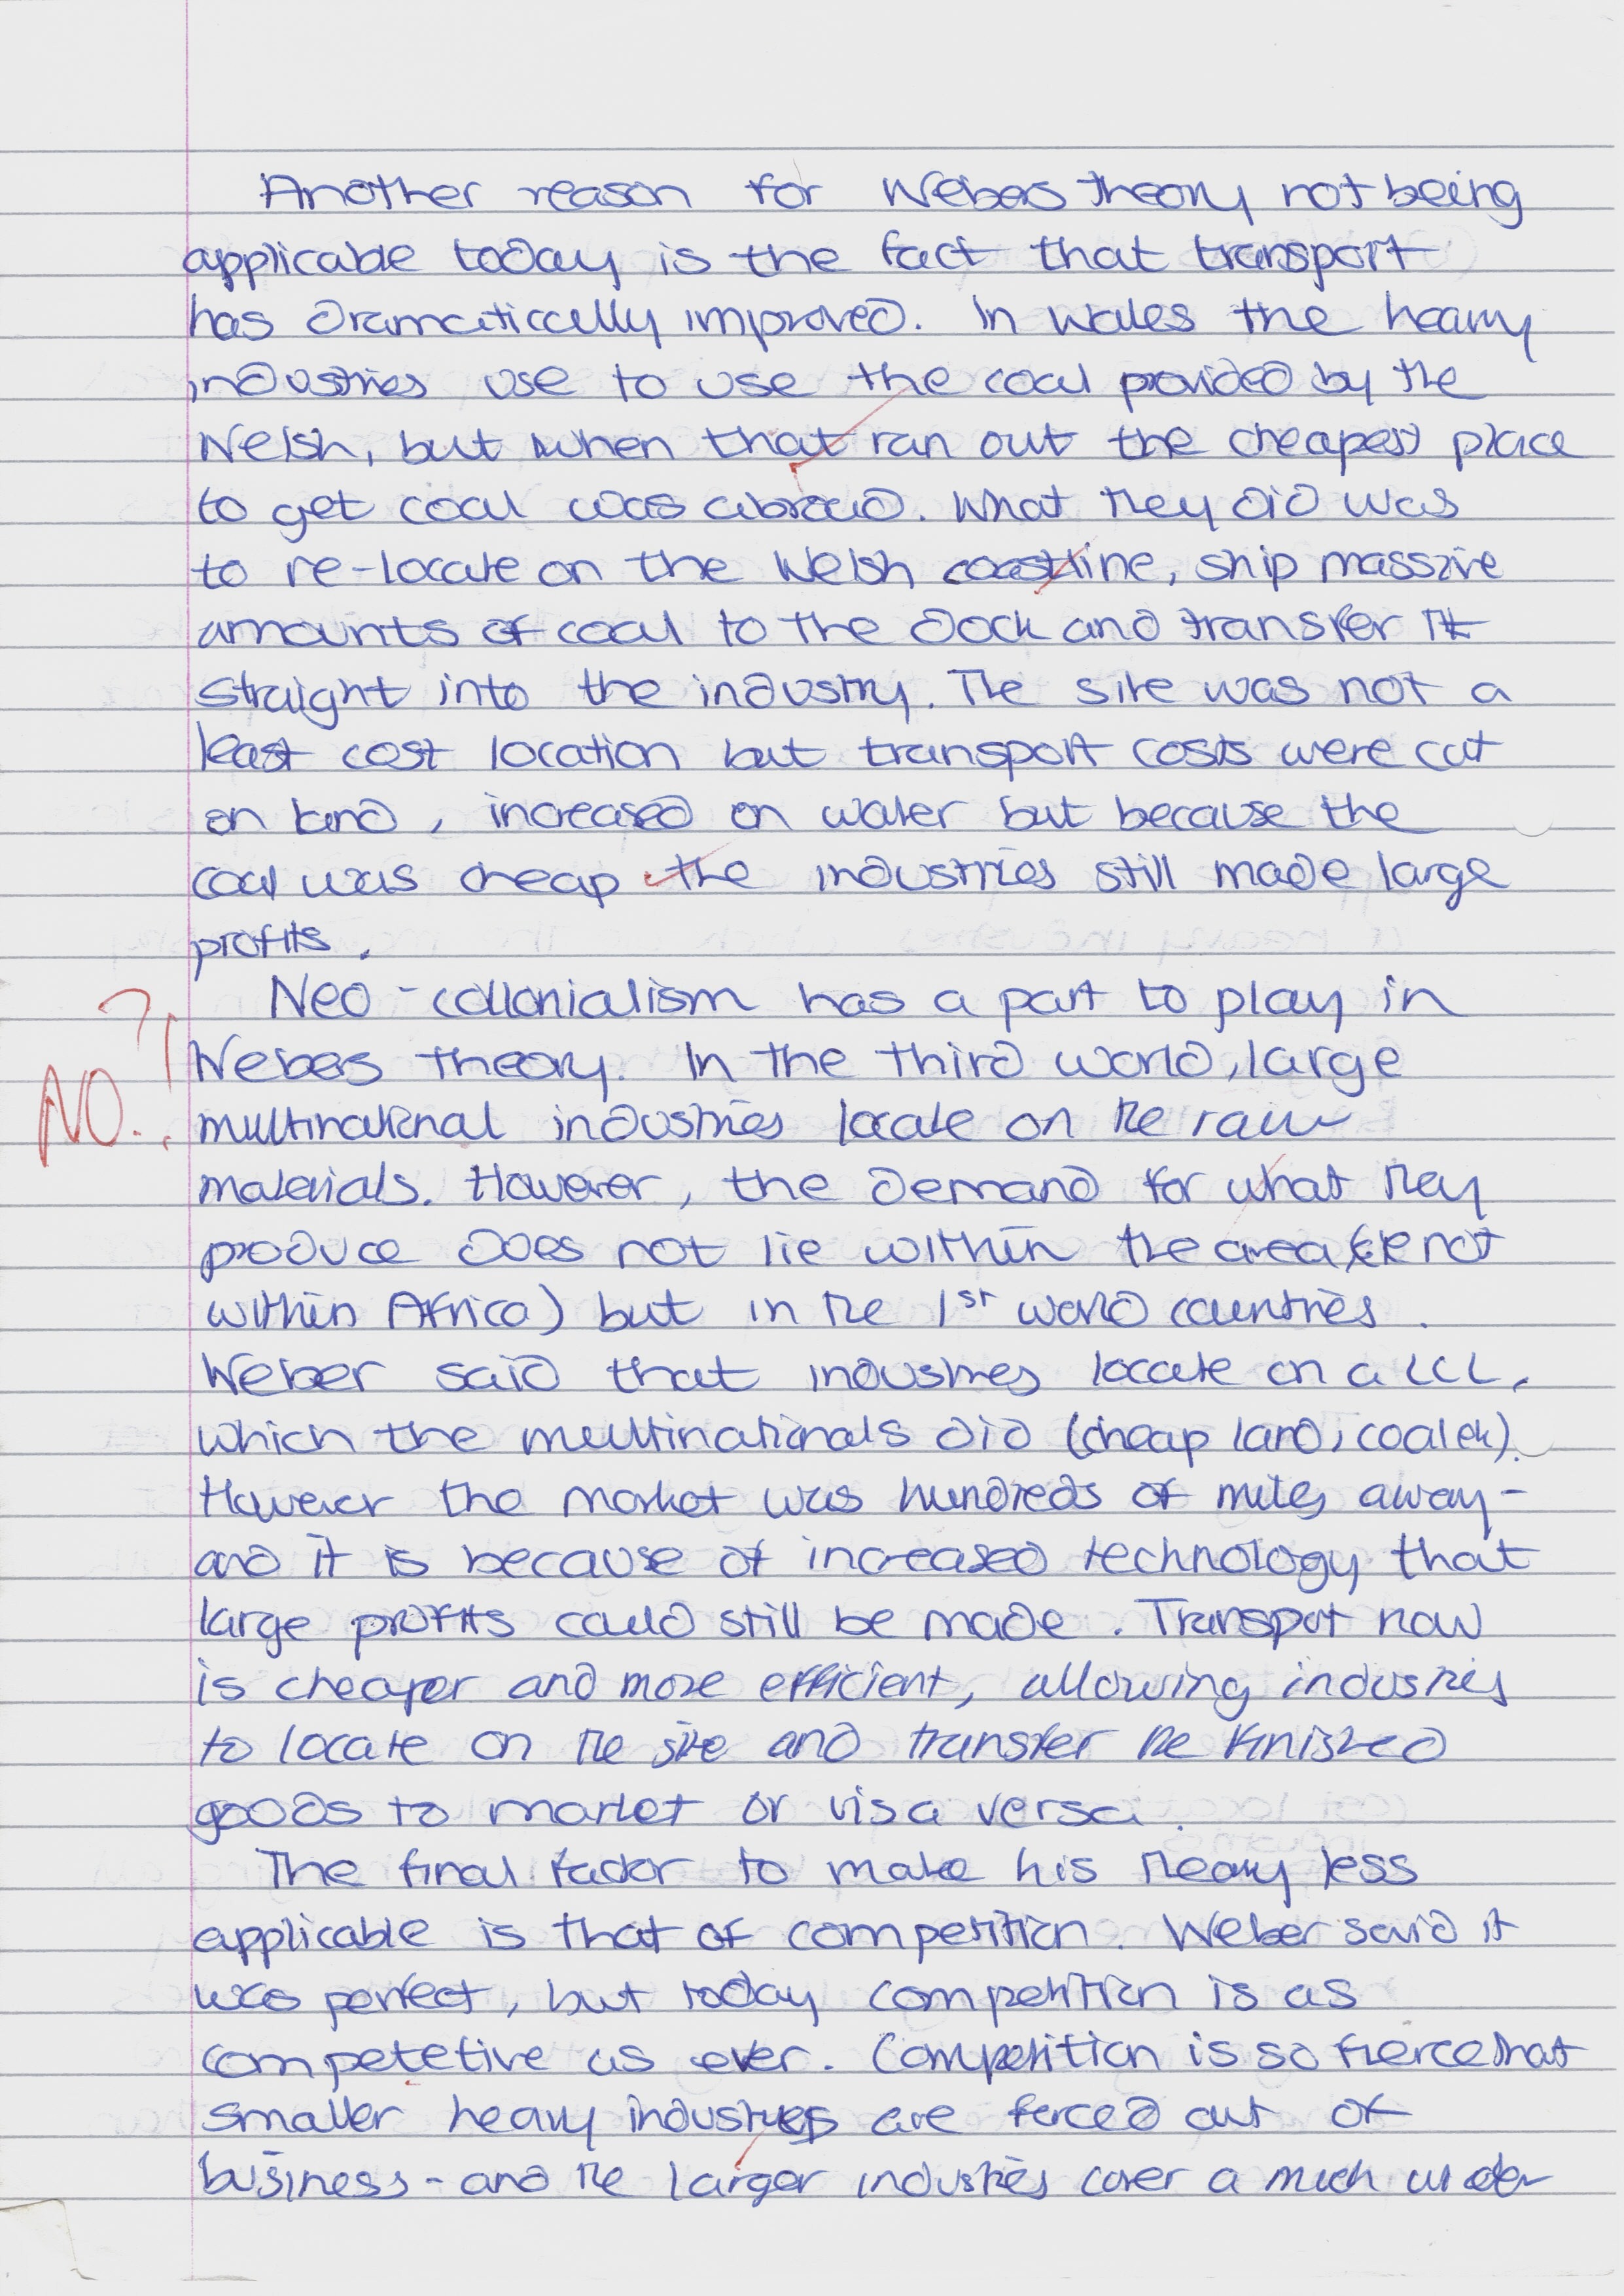 Another reason for Webers theory not being
applicable today is the fact that transport
has dramatically improved. In Wales the heavy
industries use to use the coal provided by the
Welsh, but when that ran out the cheapest place
to get coal was abroad. What they did was
to re-locate on the Welsh coastline, ship massive
amounts of coal to the dock and transfer it
straight into the industry. The site was not a
least cost location but transport costs were cut
on land, increased on water but because the
coal was cheap the industries still made large
profits.
Neo-collonialism has a part to play in
NO.?!
Webers theory. In the third world, large
multinational industries locate on the raw
materials. However, the demand for what they
produce does not lie within the area (ie not
within Africa) but in the 1st world countries.
Weber said that industries locate on a LCL,
which the multinationals did (cheap land, coal etc).
However the market was hundreds of miles away -
and it is because of increased technology that
large profits could still be made. Transpot now
is cheaper and more efficient, allowing industries
to locate on the site and transfer the finished
goods to market or visa versa.
The final factor to make his theory less
applicable is that of competition. Weber said it
was perfect, but today competition is as
competetive as ever. Competition is so fierce that
smaller heavy industries are forced out of
business - and the larger industries cover a much wider